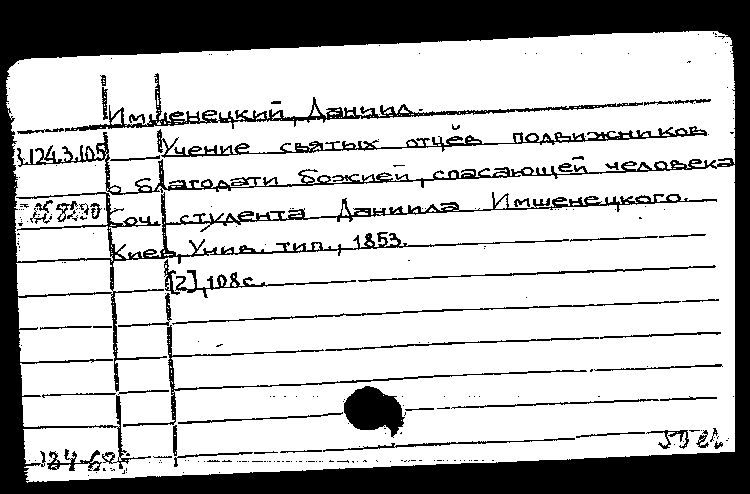 Имшенецкий, Даниил.
Учение святых отцёв подвижников
о благодати Божией, спасающей человека
Соч. студента Даниила Имшенецкого.
Киев, Унив. тип., 1853.
[2], 108 с.